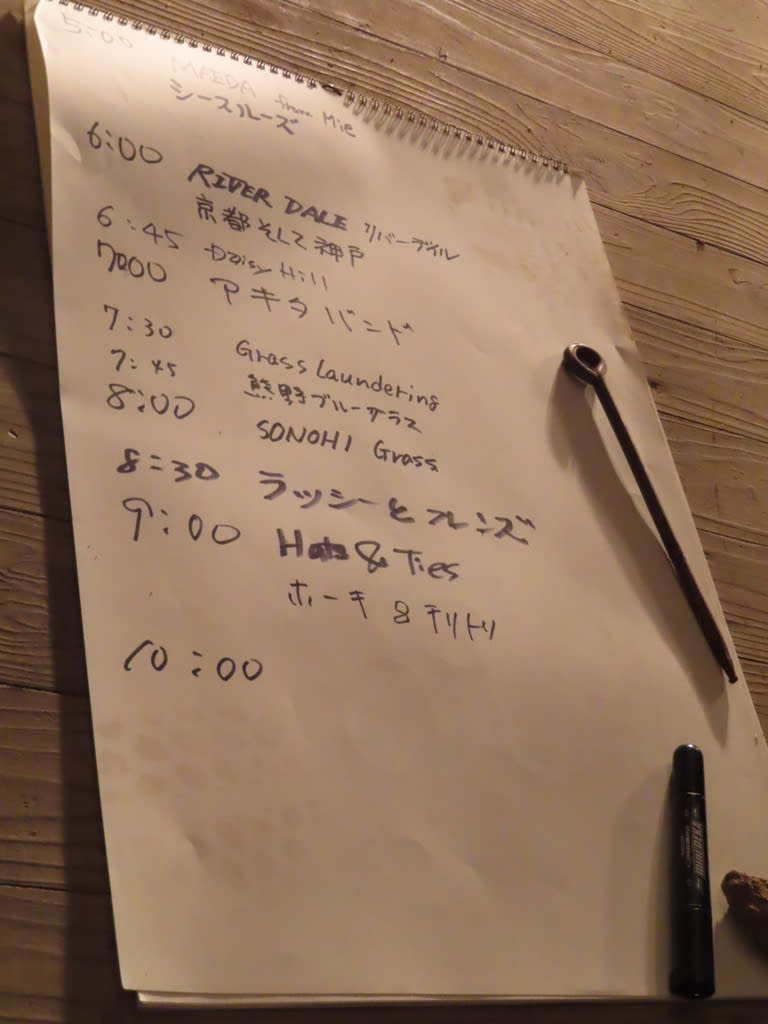 5:00 MAEDA from Mie
シースルーズ
6:00 RIVER DALE リバーデイル
京都そして神戸
6:45 Daisy Hill
7:00 アキタ バンド
7:30 Grass Laundering
7:45 熊野ブルーグラス
8:00 SONOHI Grass
8:30 ラッシーとフレンズ
9:00 Hats & Ties
ホーキ & チリトリ
10:00